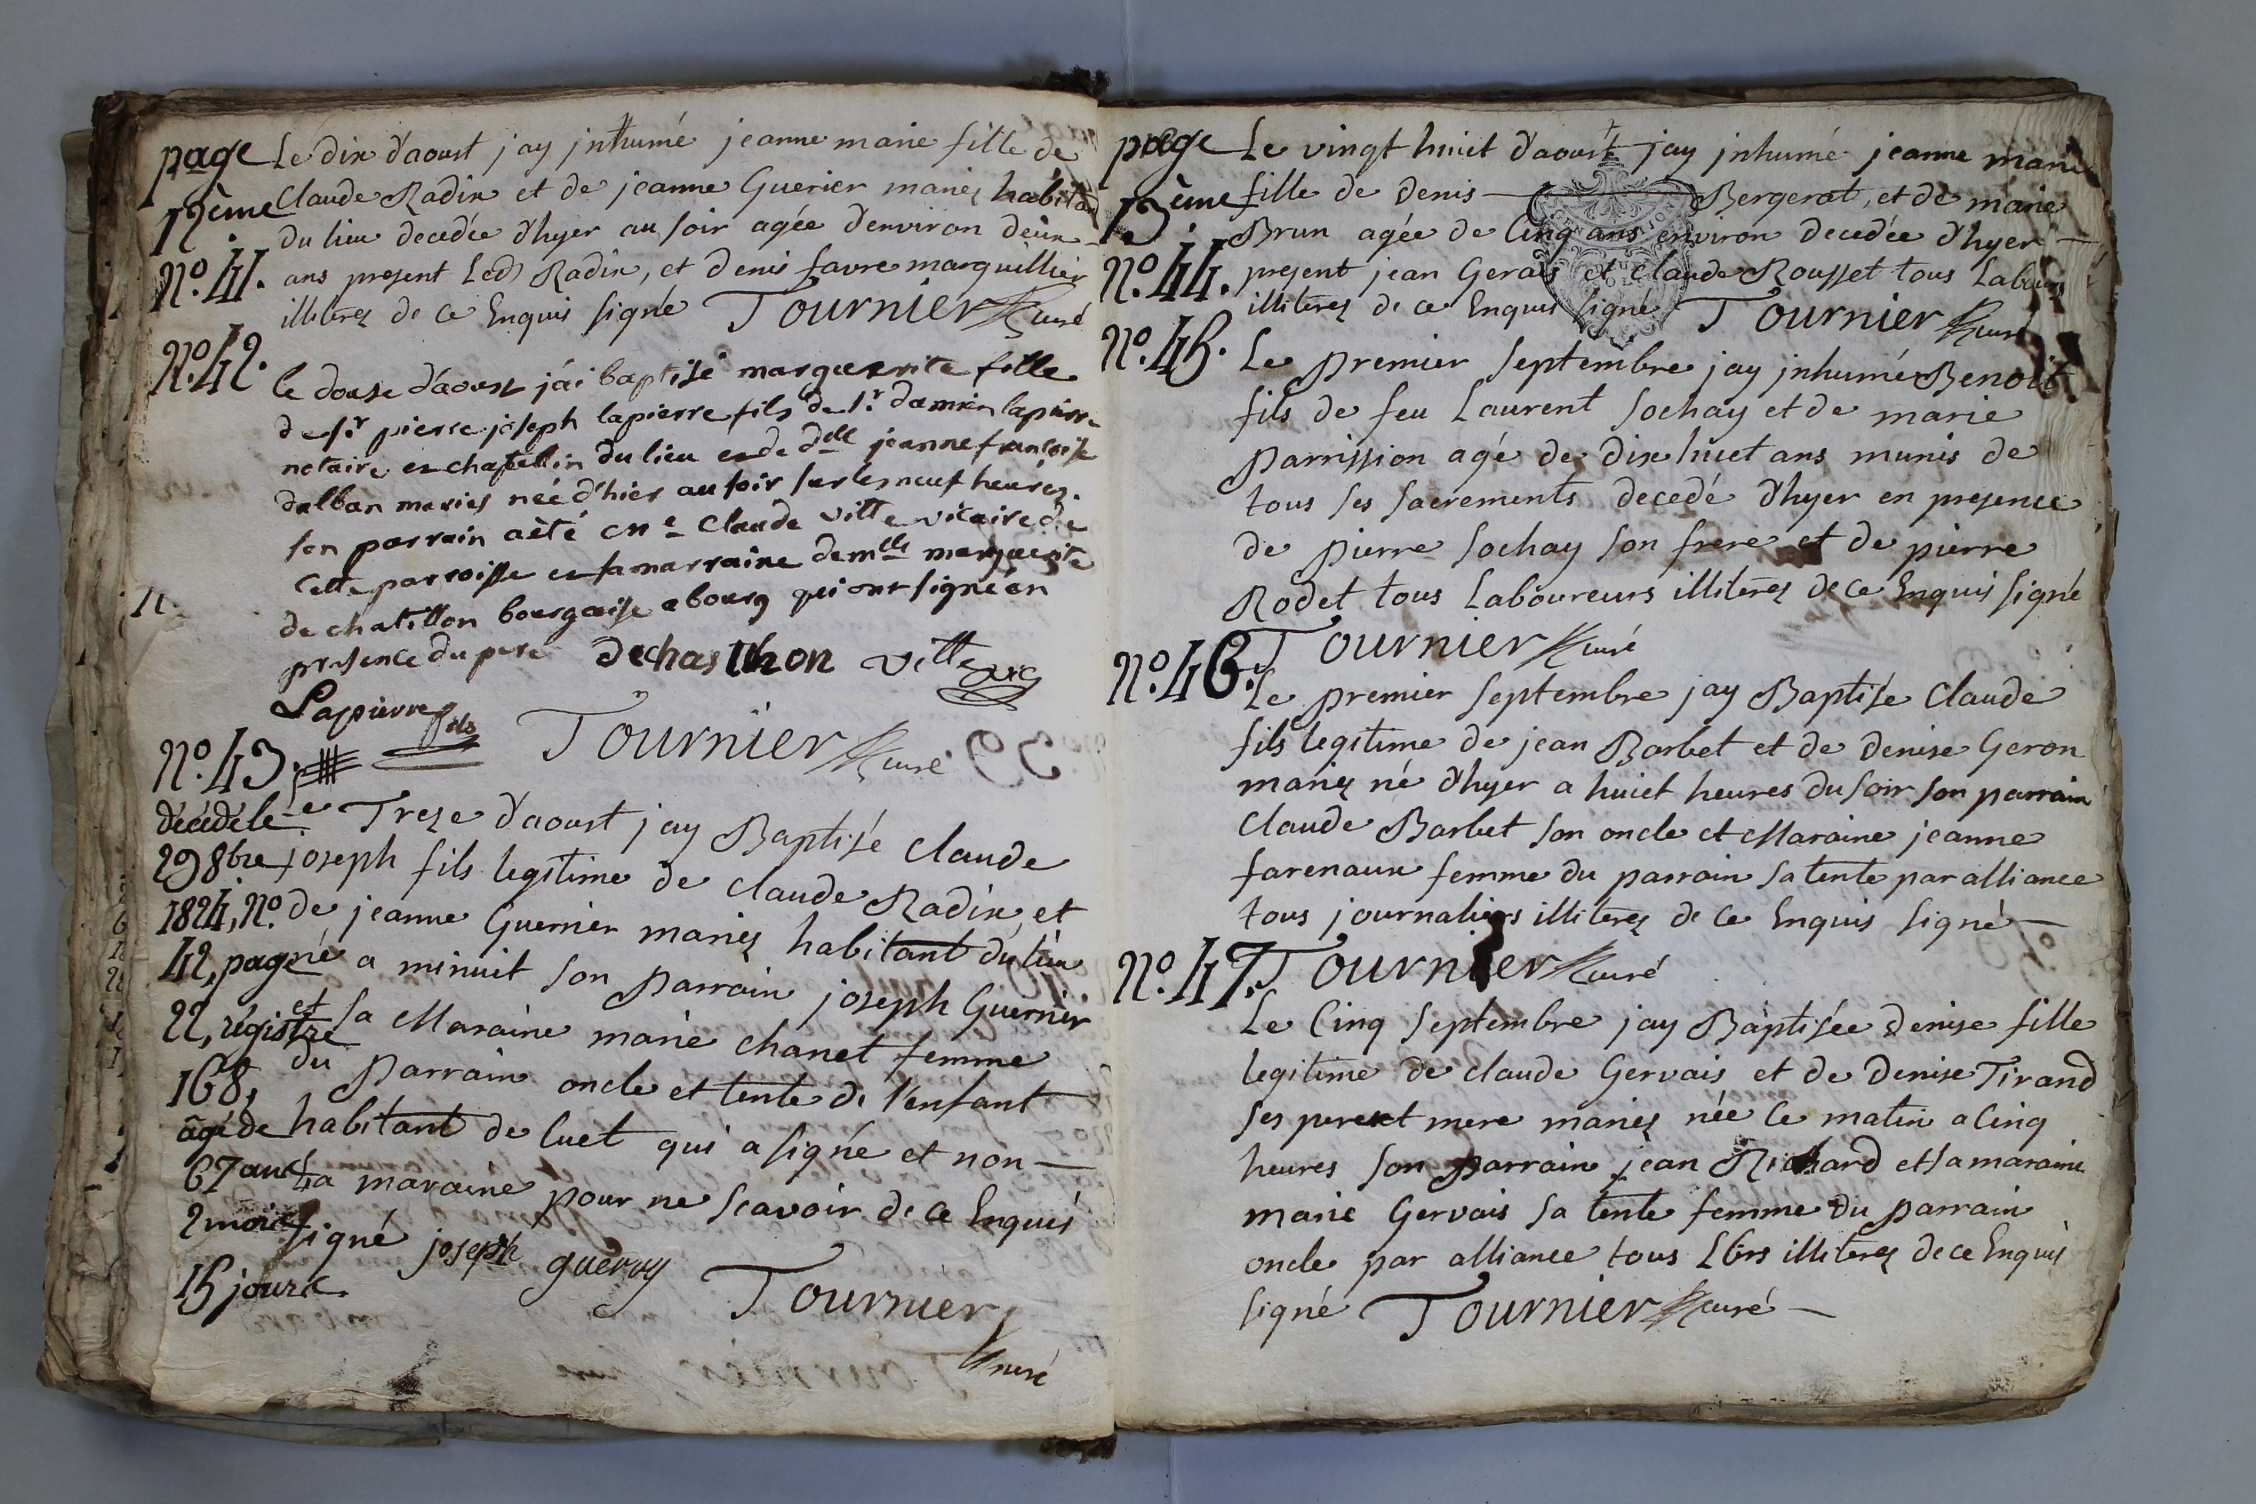 page
12ème
N.º 41.
Le dix d'aoust jay jnhumé jeanne marie fille de
Claude Radix et de jeanne Guerier mariez habitan
du lieu decedée d'hyer au soir agée denviron deux
ans present Led Radix, et denis favre marguillier
illiterez de ce Enquis signé Tournier curé
N.º 42.
le douse d'aoust j'ai baptisé marguerite fille
de sr pierre joseph lapierre fils de sr. damien lapierre
notaire et chatellin du lieu et de dlle jeanne francoise
dalban mariés née d'hier au soir sur les neuf heures.
son parrain a été Me Claude ville vicaire de
cette parroisse et sa marraine demlle marguerite
de chatillon bourgoise a bourg qui ont signé en
presence du pere dechasthon ville vic
Lapierre fils Tournier curé
N.º 43.
décédé le
29 8bre
1824, N.º
42, page
22, régistre
168,
âgé de
67 ans
2 mois
15 jours.
Le Treze d'aoust jay Baptisé Claude
joseph fils legitime de Claude Radix et
de jeanne Guernier mariez habitant du lieu
né a minuit son Parrain joseph Guernier
et sa Maraine marie chanet femme
du Parrain oncle et tente de l'enfant
habitant de luet qui a signé et non
La maraine pour ne scavoir de ce Enquis
signé joseph guerny Tournier
curé
page
13ème
N.º 44.
Le vingt huict d'aoust jay jnhumé jeanne marie
fille de denis Bergerat, et de marie
Brun agée de Cinq ans environ decedée d'hyer
present jean Gerais et Claude Rousset tous Labours
illiterez de ce Enquis signé Tournier curé
N.º 45.
Le Premier Septembre jay jnhumé Benoit
fils de feu Laurent Sochay et de marie
Parrission agé de dix huict ans munis de
tous ses sacrements decedé d'hyer en presence
de pierre Sochay son frere et de pierre
Rodet tous Laboureurs illiterez de ce Enquis signé
Tournier curé
N.º 46.
Le premier Septembre jay Baptisé Claude
fils legitime de jean Barbet et de denise Geron
mariez né d'hyer a huict heures du soir son parrain
Claude Barbet son oncle et Maraine jeanne
farenaux femme du parrain sa tente par alliance
tous journaliers illiterez de ce Enquis signé
N.º 47.
Tournier curé
Le Cinq Septembre jay Baptisée denise fille
legitime de claude Gervais et de Denise Tirand
ses pere et mere mariez née ce matin a Cinq
heures son Parrain jean Richard et sa maraine
marie Gervais sa tente femme du parrain
oncle par alliance tous LBrs illiterez de ce Enquis
signé Tournier curé